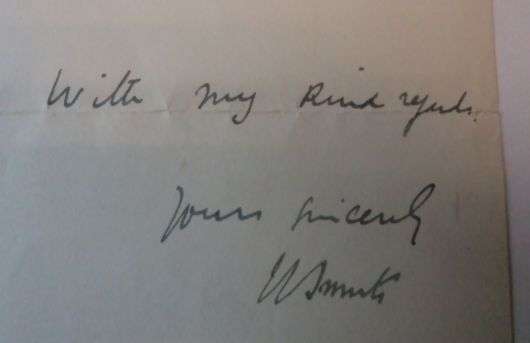 With my kind regards.
Yours sincerely
Smuts